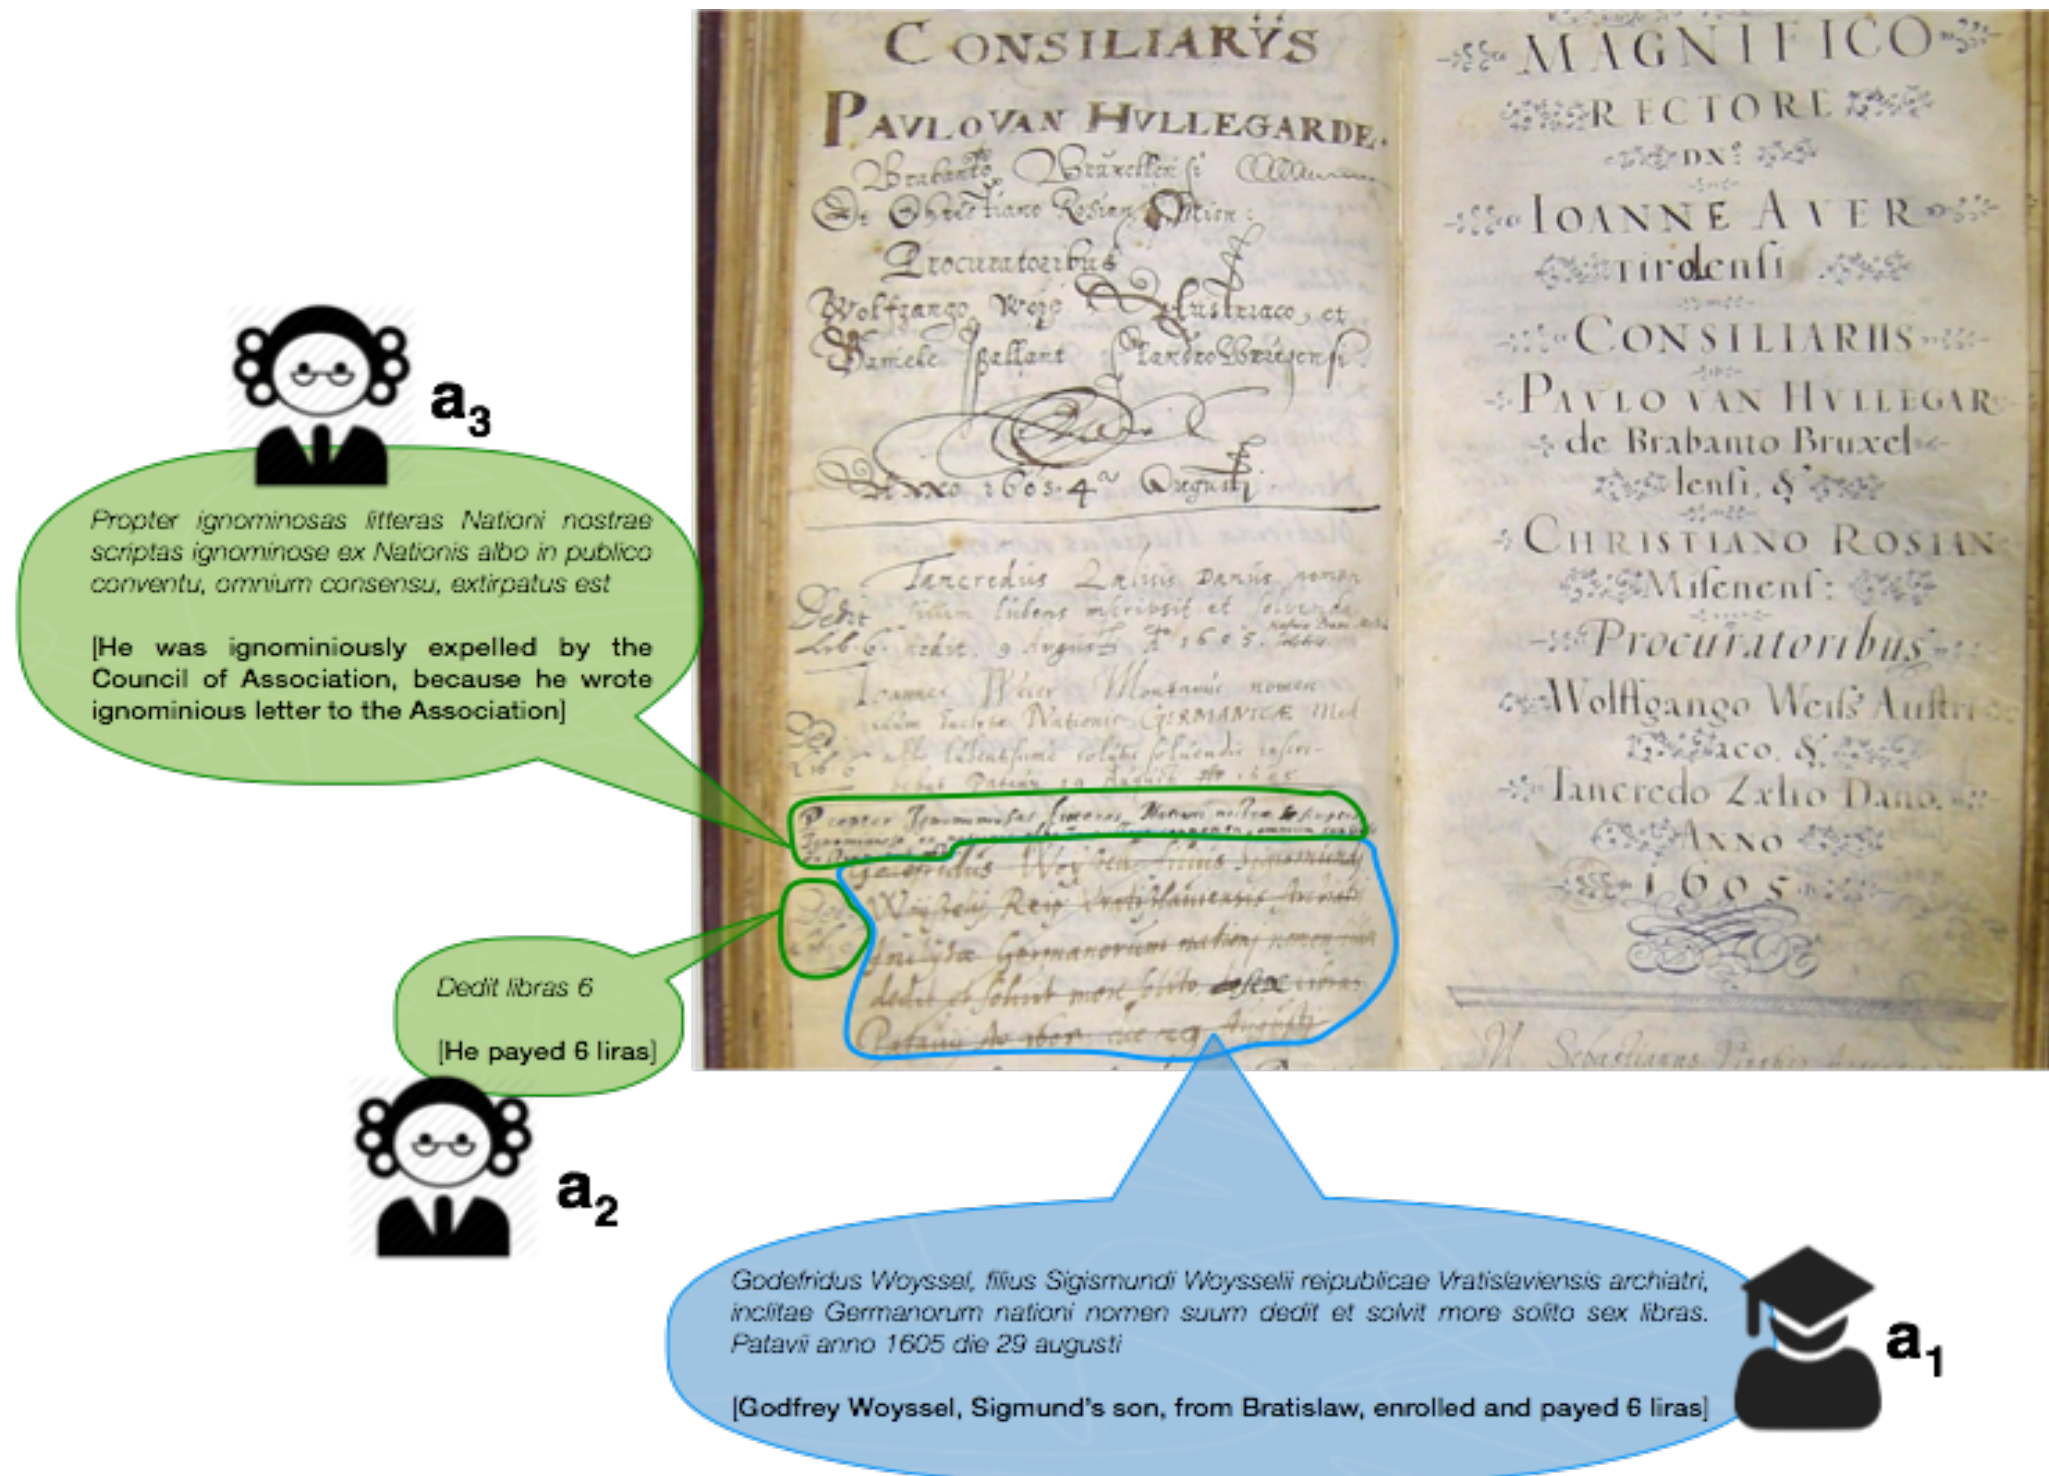 CONSILIARYS
PAVLO VAN HVLLEGARDE.
Brabanto Bruxellensi
Christiano Rosian Misn:
Procuratoribus
Wolfgango Weis Austriaco, et
Daniele pallant Flandro Brugensi.
Anno 1605. 4 Augusti
Tancredus Zelius Danus nomen
Dedit suum lubens inscripsit et solvenda
Lib. 6. dedit. 9 Augusti A 1605.
Ioannes Weier Montanus nomen
suum inclytae Nationis GERMANICÆ Med
albo lubentissime solutis solvendis inscri-
bebat Patavii 19 Augusti 1605
Propter Ignominiosas litteras Nationi nostrae scriptas
Godefridus Woyssel filius Sigismundi
Woysselij Reip Vratislaviensis Archiatri
inclytae Germanorum nationj nomen suum
dedit et solvit more solito libras
Patavij Ao 1605 die 29 Augusti
MAGNIFICO
RECTORE
DN°
IOANNE AVER
tirolensi
CONSILIARIIS
PAVLO VAN HVLLEGAR
de Brabanto Bruxel
lensi, &
CHRISTIANO ROSIAN
Misenens:
Procuratoribus
Wolffgango Weiss Austri
aco, &
Tancredo Zælio Dano.
ANNO
1605
N. Sebastianus
a3
Propter ignominosas litteras Nationi nostrae
scriptas ignominose ex Nationis albo in publico
conventu, omnium consensu, extirpatus est
[He was ignominiously expelled by the
Council of Association, because he wrote
ignominious letter to the Association]
Dedit libras 6
[He payed 6 liras]
a2
Godefridus Woyssel, filius Sigismundi Woysselii reipublicae Vratislaviensis archiatri,
inclitae Germanorum nationi nomen suum dedit et solvit more solito sex libras.
Patavii anno 1605 die 29 augusti
[Godfrey Woyssel, Sigmund's son, from Bratislaw, enrolled and payed 6 liras]
a1